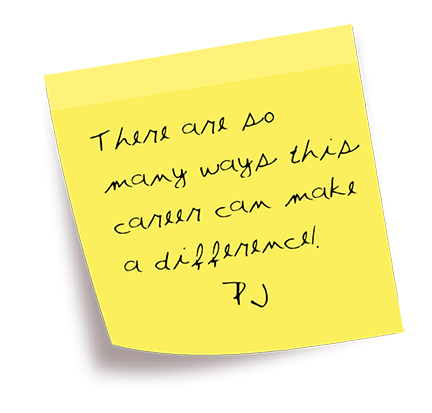 There are so
many ways this
career can make
a difference!
PJ